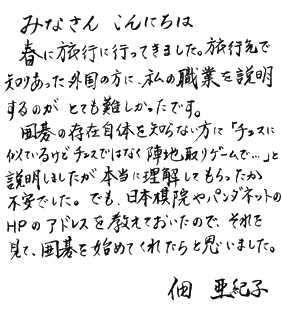 みなさん こんにちは
春に旅行に行ってきました。旅行先で
知りあった外国の方に、私の職業を説明
するのが とても難しかったです。
囲碁の存在自体を知らない方に「チェスに
似ているけどチェスではなく 陣地取りゲームで…」と
説明しましたが本当に理解してもらったか
不安でした。でも、日本棋院やパンダネットの
HPのアドレスを教えておいたので、それを
見て、囲碁を始めてくれたらと思いました。
佃 亜紀子